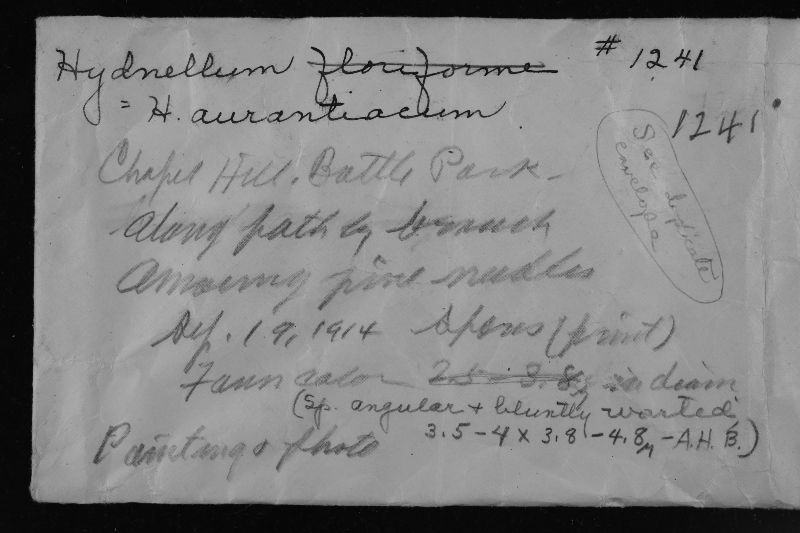 Hydnellum floriforme # 1241
= H. aurantiacum
1241
See duplicate
envelope
Chapel Hill. Battle Park -
Along path by branch
Among pine needles
Sep. 19, 1914 Spores (print)
Fawn color 2.5 - 3.8μ in diam
(Sp. angular + bluntly warted,
3.5 - 4 x 3.8 - 4.8μ - A.H.B.)
Painting & photo